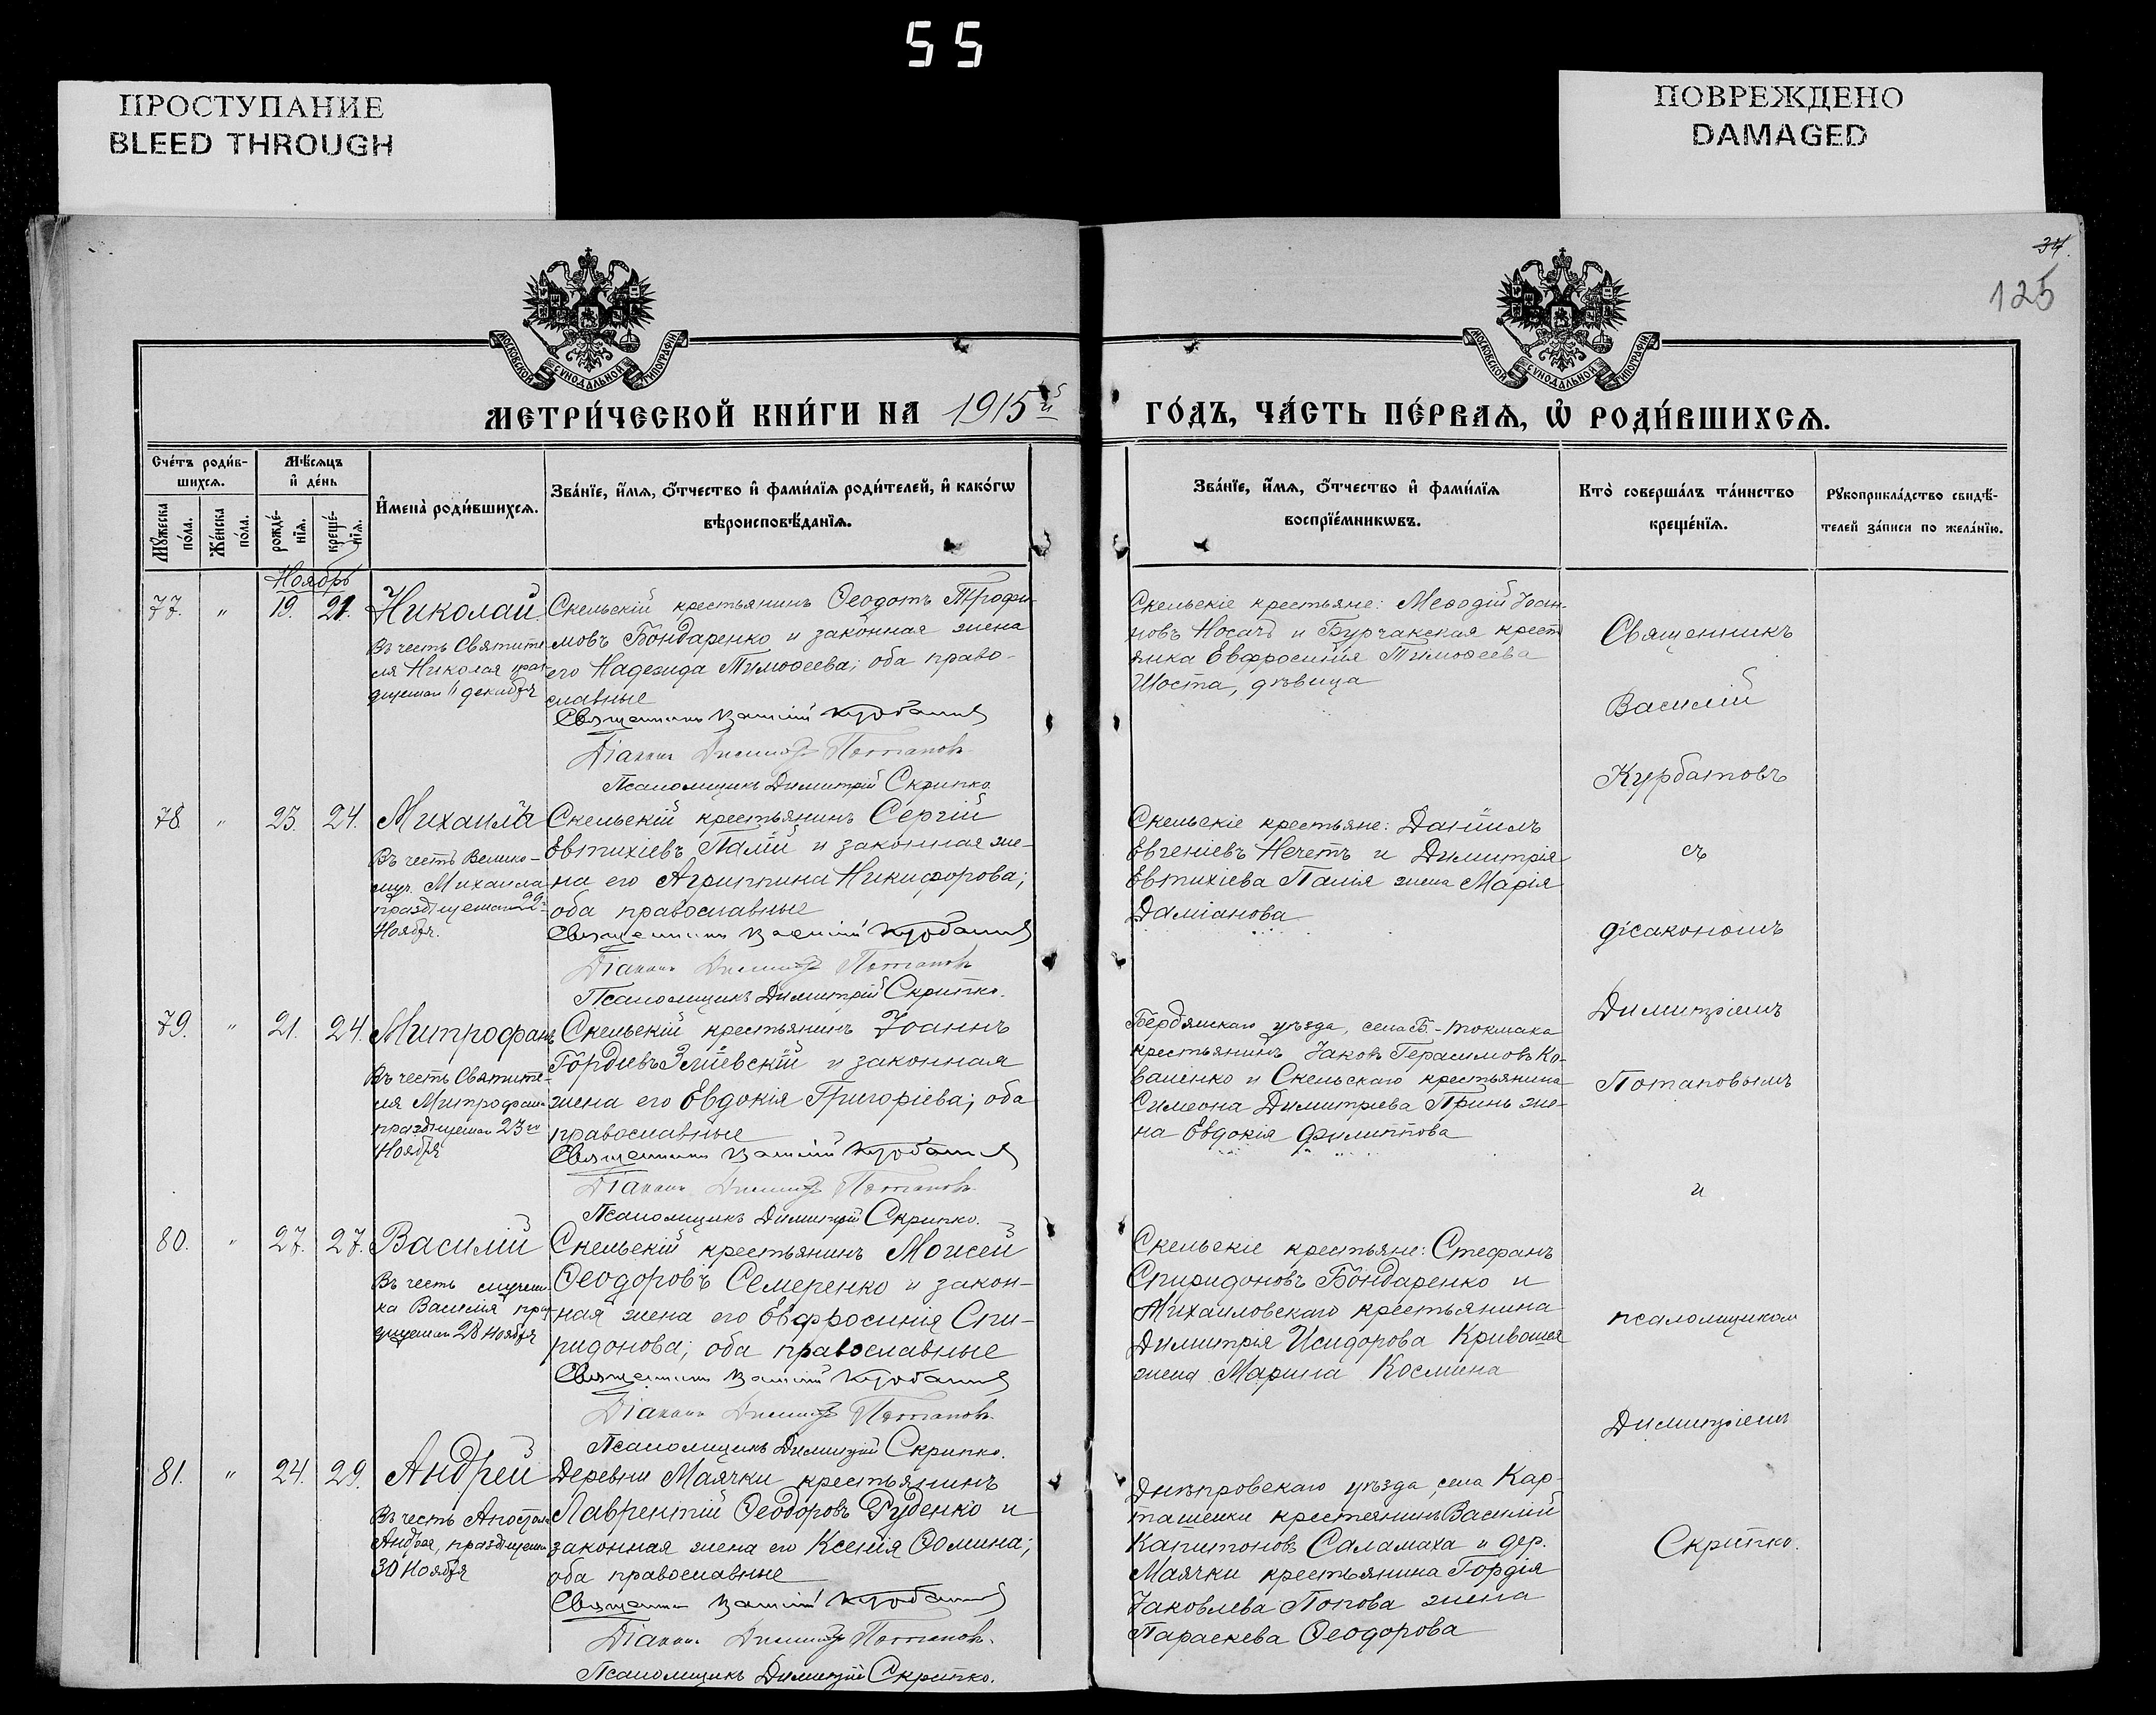 55
ПРОСТУПАНИЕ
BLEED THROUGH
ПОВРЕЖДЕНО
DAMAGED
34.
125
МОСКОВСКОЙ СѴНОДАЛЬНОЙ ТИПОГРАФІИ
МОСКОВСКОЙ СѴНОДАЛЬНОЙ ТИПОГРАФІИ
МЕТРИ́ЧЕСКОЙ КНИ́ГИ НА 1915й
ГО́ДЪ, ЧА́СТЬ ПЕ́РВАѦ, Ѡ҆ РОДИ́ВШИХСѦ.
Сче́тъ роди́в-
шихсѧ.
Мꙋ́жеска
по́ла.
Же́нска
по́ла.
Мѣ́сѧцъ
и҆ де́нь
рожде́-
нїѧ.
креще́-
нїѧ.
И҆мена̀ роди́вшихсѧ.
Зва́нїе, и҆́мѧ, ѻ҆́тчество и҆ фами́лїѧ роди́телей, и҆ како́гѡ
вѣроисповѣ́данїѧ.
Зва́нїе, и҆́мѧ, ѻ҆́тчество и҆ фами́лїѧ
воспрїе́мникѡвъ.
Кто̀ соверша́лъ та́инство
креще́нїѧ.
Рꙋкоприкла́дство свидѣ́-
телей за́писи по жела́нїю.
Ноябрь
77. " 19. 21. Николай
Въ честь Святите-
ля Николая праз-
днуемаго 6 декабря
Скельскій крестьянинъ Ѳеодотъ Трофи-
мовъ Бондаренко и законная жена
его Надежда Тимоѳеева; оба право-
славные
Священникъ Василій Курбатовъ
Діаконъ Димитрій Потаповъ.
Псаломщикъ Димитрій Скрипко.
Скельскіе крестьяне: Меѳодій Іоан-
новъ Носачъ и Бурчакская крест
янка Евфросинія Тимоѳеева
Шоста, дѣвица
78. " 23. 24. Михаилъ
Въ честь Велико-
муч. Михаила
празднуемаго 22го
Ноября.
Скельскій крестьянинъ Сергій
Евтихіевъ Палій и законная же-
на его Агриппина Никифорова;
оба православные
Священникъ Василій Курбатовъ
Діаконъ Димитрій Потаповъ
Псаломщикъ Димитрій Скрипко.
Скельскіе крестьяне: Даніилъ
Евгеніевъ Нечетъ и Димитрія
Евтихіева Палія жена Марія
Даміанова
79. " 21. 24. Митрофанъ
Въ честь Святите-
ля Митрофана
празднуемаго 23го
Ноября
Скельскій крестьянинъ Іоаннъ
Гордіевъ Зміевскій и законная
жена его Евдокія Григоріева; оба
православные
Священникъ Василій Курбатовъ
Діаконъ Димитрій Потаповъ.
Псаломщикъ Димитрій Скрипко.
Бердянскаго уѣзда, села Б.-Токмака
крестьянинъ Іаковъ Герасимовъ Ко-
валенко и Скельскаго крестьянина
Симеона Димитріева Принь же-
на Евдокія Филиппова
80. " 27. 27. Василій
Въ честь мучени-
ка Василія праз-
днуемаго 28 Ноября
Скельскій крестьянинъ Моисей
Ѳеодоровъ Семеренко и закон-
ная жена его Евфросинія Спи-
ридонова; оба православные
Священникъ Василій Курбатовъ
Діаконъ Димитрій Потаповъ.
Псаломщикъ Димитрій Скрипко.
Скельскіе крестьяне: Стефанъ
Спиридоновъ Бондаренко и
Михаиловскаго крестьянина
Димитрія Исидорова Кривошея
жена Марина Космина
81. " 24. 29. Андрей
Въ честь Апостола
Андрея, празднуемаго
30 Ноября
Деревни Маячки крестьянинъ
Лаврентій Ѳеодоровъ Руденко и
законная жена его Ксенія Ѳомина;
оба православные
Священникъ Василій Курбатовъ
Діаконъ Димитрій Потаповъ.
Псаломщикъ Димитрій Скрипко.
Днѣпровскаго уѣзда села Кар-
ташенки крестьянинъ Василій
Капитоновъ Саламаха и дер.
Маячки крестьянина Гордія
Іаковлева Попова жена
Параскева Ѳеодорова
Священникъ
Василій
Курбатовъ
съ
діакономъ
Димитріемъ
Потаповымъ
и
псаломщикомъ
Димитріемъ
Скрипко.